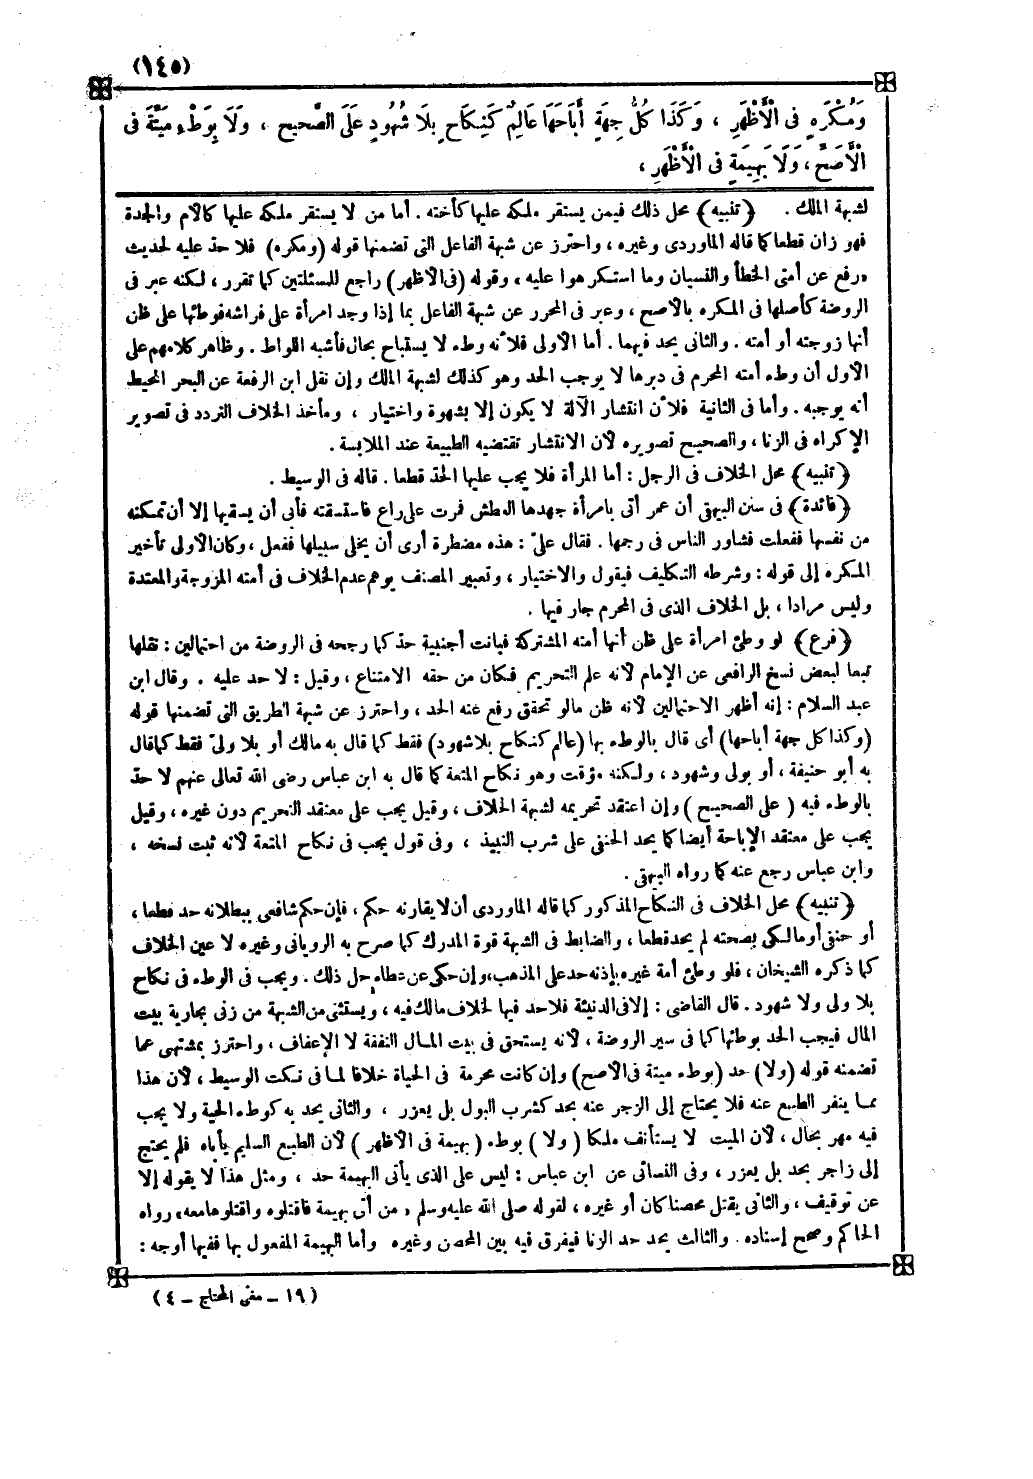 (١٤٥)
وَمُكْرَهٍ فى الْأَظْهَرِ ، وَكَذَا كُلُّ جِهَةٍ أَبَاحَهَا عَالِمٌ كَنِكَاحٍ بِلَا شُهُودٍ عَلَى الصَّحِيحِ ، وَلَا بِوَطْءِ مَيْتَةٍ فى
الْأَصَحِّ ، وَلَا بَهِيمَةٍ فى الْأَظْهَرِ ،
لشبهة الملك . ﴿تنبيه﴾ محل ذلك فيمن يستقر ملكه عليها كأخته . أما من لا يستقر ملكه عليها كالأم والجدة
فهو زان قطعا كما قاله الماوردى وغيره ، واحترز عن شبهة الفاعل التى تضمنها قوله (ومكره) فلا حد عليه لحديث
«رفع عن أمتى الخطأ والنسيان وما استكرهوا عليه» وقوله (فى الأظهر) راجع للمسئلتين كما تقرر ، لكنه عبر فى
الروضة كأصلها فى المكره بالأصح ، وعبر فى المحرر عن شبهة الفاعل بما إذا وجد امرأة على فراشه فوطئها على ظن
أنها زوجته أو أمته . والثانى يحد فيهما . أما الأولى فلأنه وطء لا يستباح بحال فأشبه اللواط . وظاهر كلامهم على
الأول أن وطء أمته المحرم فى دبرها لا يوجب الحد وهو كذلك لشبهة الملك وإن نقل ابن الرفعة عن البحر المحيط
أنه يوجبه . وأما فى الثانية فلأن انتشار الآلة لا يكون إلا بشهوة واختيار ، ومأخذ الخلاف التردد فى تصوير
الإكراه فى الزنا ، والصحيح تصويره لأن الانتشار تقتضيه الطبيعة عند الملابسة .
﴿تنبيه﴾ محل الخلاف فى الرجل : أما المرأة فلا يجب عليها الحد قطعا . قاله فى الوسيط .
﴿فائدة﴾ فى سنن البيهقى أن عمر أتى بامرأة جهدها العطش فمرت على راع فاستسقته فأبى أن يسقيها إلا أن تمكنه
من نفسها ففعلت فشاور الناس فى رجمها . فقال علىّ : هذه مضطرة أرى أن يخلى سبيلها ففعل ، وكان الأولى تأخير
المكره إلى قوله : وشرطه التكليف فيقول والاختيار ، وتعبير المصنف يوهم عدم الخلاف فى أمته المزوجة والمعتدة
وليس مرادا ، بل الخلاف الذى فى المحرم جار فيها .
﴿فرع﴾ لو وطئ امرأة على ظن أنها أمته المشتركة فبانت أجنبية حد كما رجحه فى الروضة من احتمالين : نقلها
تبعا لبعض نسخ الرافعى عن الإمام لأنه علم التحريم فكان من حقه الامتناع ، وقيل : لا حد عليه . وقال ابن
عبد السلام : إنه أظهر الاحتمالين لأنه ظن مالو تحقق رفع عنه الحد ، واحترز عن شبهة الطريق التى تضمنها قوله
(وكذا كل جهة أباحها) أى قال بالوطء بها (عالم كنكاح بلا شهود) فقط كما قال به مالك أو بلا ولىّ فقط كما قال
به أبو حنيفة ، أو بولى وشهود ، ولكنه مؤقت وهو نكاح المتعة كما قال به ابن عباس رضى الله تعالى عنهم لا حد
بالوطء فيه ( على الصحيح ) وإن اعتقد تحريمه لشبهة الخلاف ، وقيل يجب على معتقد التحريم دون غيره ، وقيل
يجب على معتقد الإباحة أيضا كما يحد الحنفى على شرب النبيذ ، وفى قول يجب فى نكاح المتعة لأنه ثبت نسخه ،
وابن عباس رجع عنه كما رواه البيهقى .
﴿تنبيه﴾ محل الخلاف فى النكاح المذكور كما قاله الماوردى أن لا يقارنه حكم ، فإن حكم شافعى ببطلانه حد قطعا ،
أو حنفى أو مالكى بصحته لم يحد قطعا ، والضابط فى الشبهة قوة المدرك كما صرح به الرويانى وغيره لا عين الخلاف
كما ذكره الشيخان ، فلو وطئ أمة غيره بإذنه حد على المذهب ، وإن حكى عن عطاء حل ذلك . ويجب فى الوطء فى نكاح
بلا ولى ولا شهود . قال القاضى : إلا فى الدنيئة فلا حد فيها لخلاف مالك فيه ، ويستثنى من الشبهة من زنى بجارية بيت
المال فيجب الحد بوطئها كما فى سير الروضة ، لأنه يستحق فى بيت المال النفقة لا الإعفاف ، واحترز بمشتهى عما
تضمنه قوله (ولا) حد (بوطء ميتة فى الأصح) وإن كانت محرمة فى الحياة خلافا لما فى نكت الوسيط ، لأن هذا
مما ينفر الطبع عنه فلا يحتاج إلى الزجر عنه بحد كشرب البول بل يعزر ، والثانى يحد به كوطء الحية ولا يجب
فيه مهر بحال ، لأن الميت لا يستأنف ملكا ( ولا ) بوطء ( بهيمة فى الأظهر ) لأن الطبع السليم يأباه فلم يحتج
إلى زاجر بحد بل يعزر ، وفى النسائى عن ابن عباس : ليس على الذى يأتى البهيمة حد ، ومثل هذا لا يقوله إلا
عن توقيف ، والثانى يقتل محصنا كان أو غيره ، لقوله صلى الله عليه وسلم «من أتى بهيمة فاقتلوه واقتلوها معه» رواه
الحاكم وصحح إسناده . والثالث يحد حد الزنا فيفرق فيه بين المحصن وغيره وأما البهيمة المفعول بها ففيها أوجه :
( ١٩ - مغنى المحتاج - ٤ )